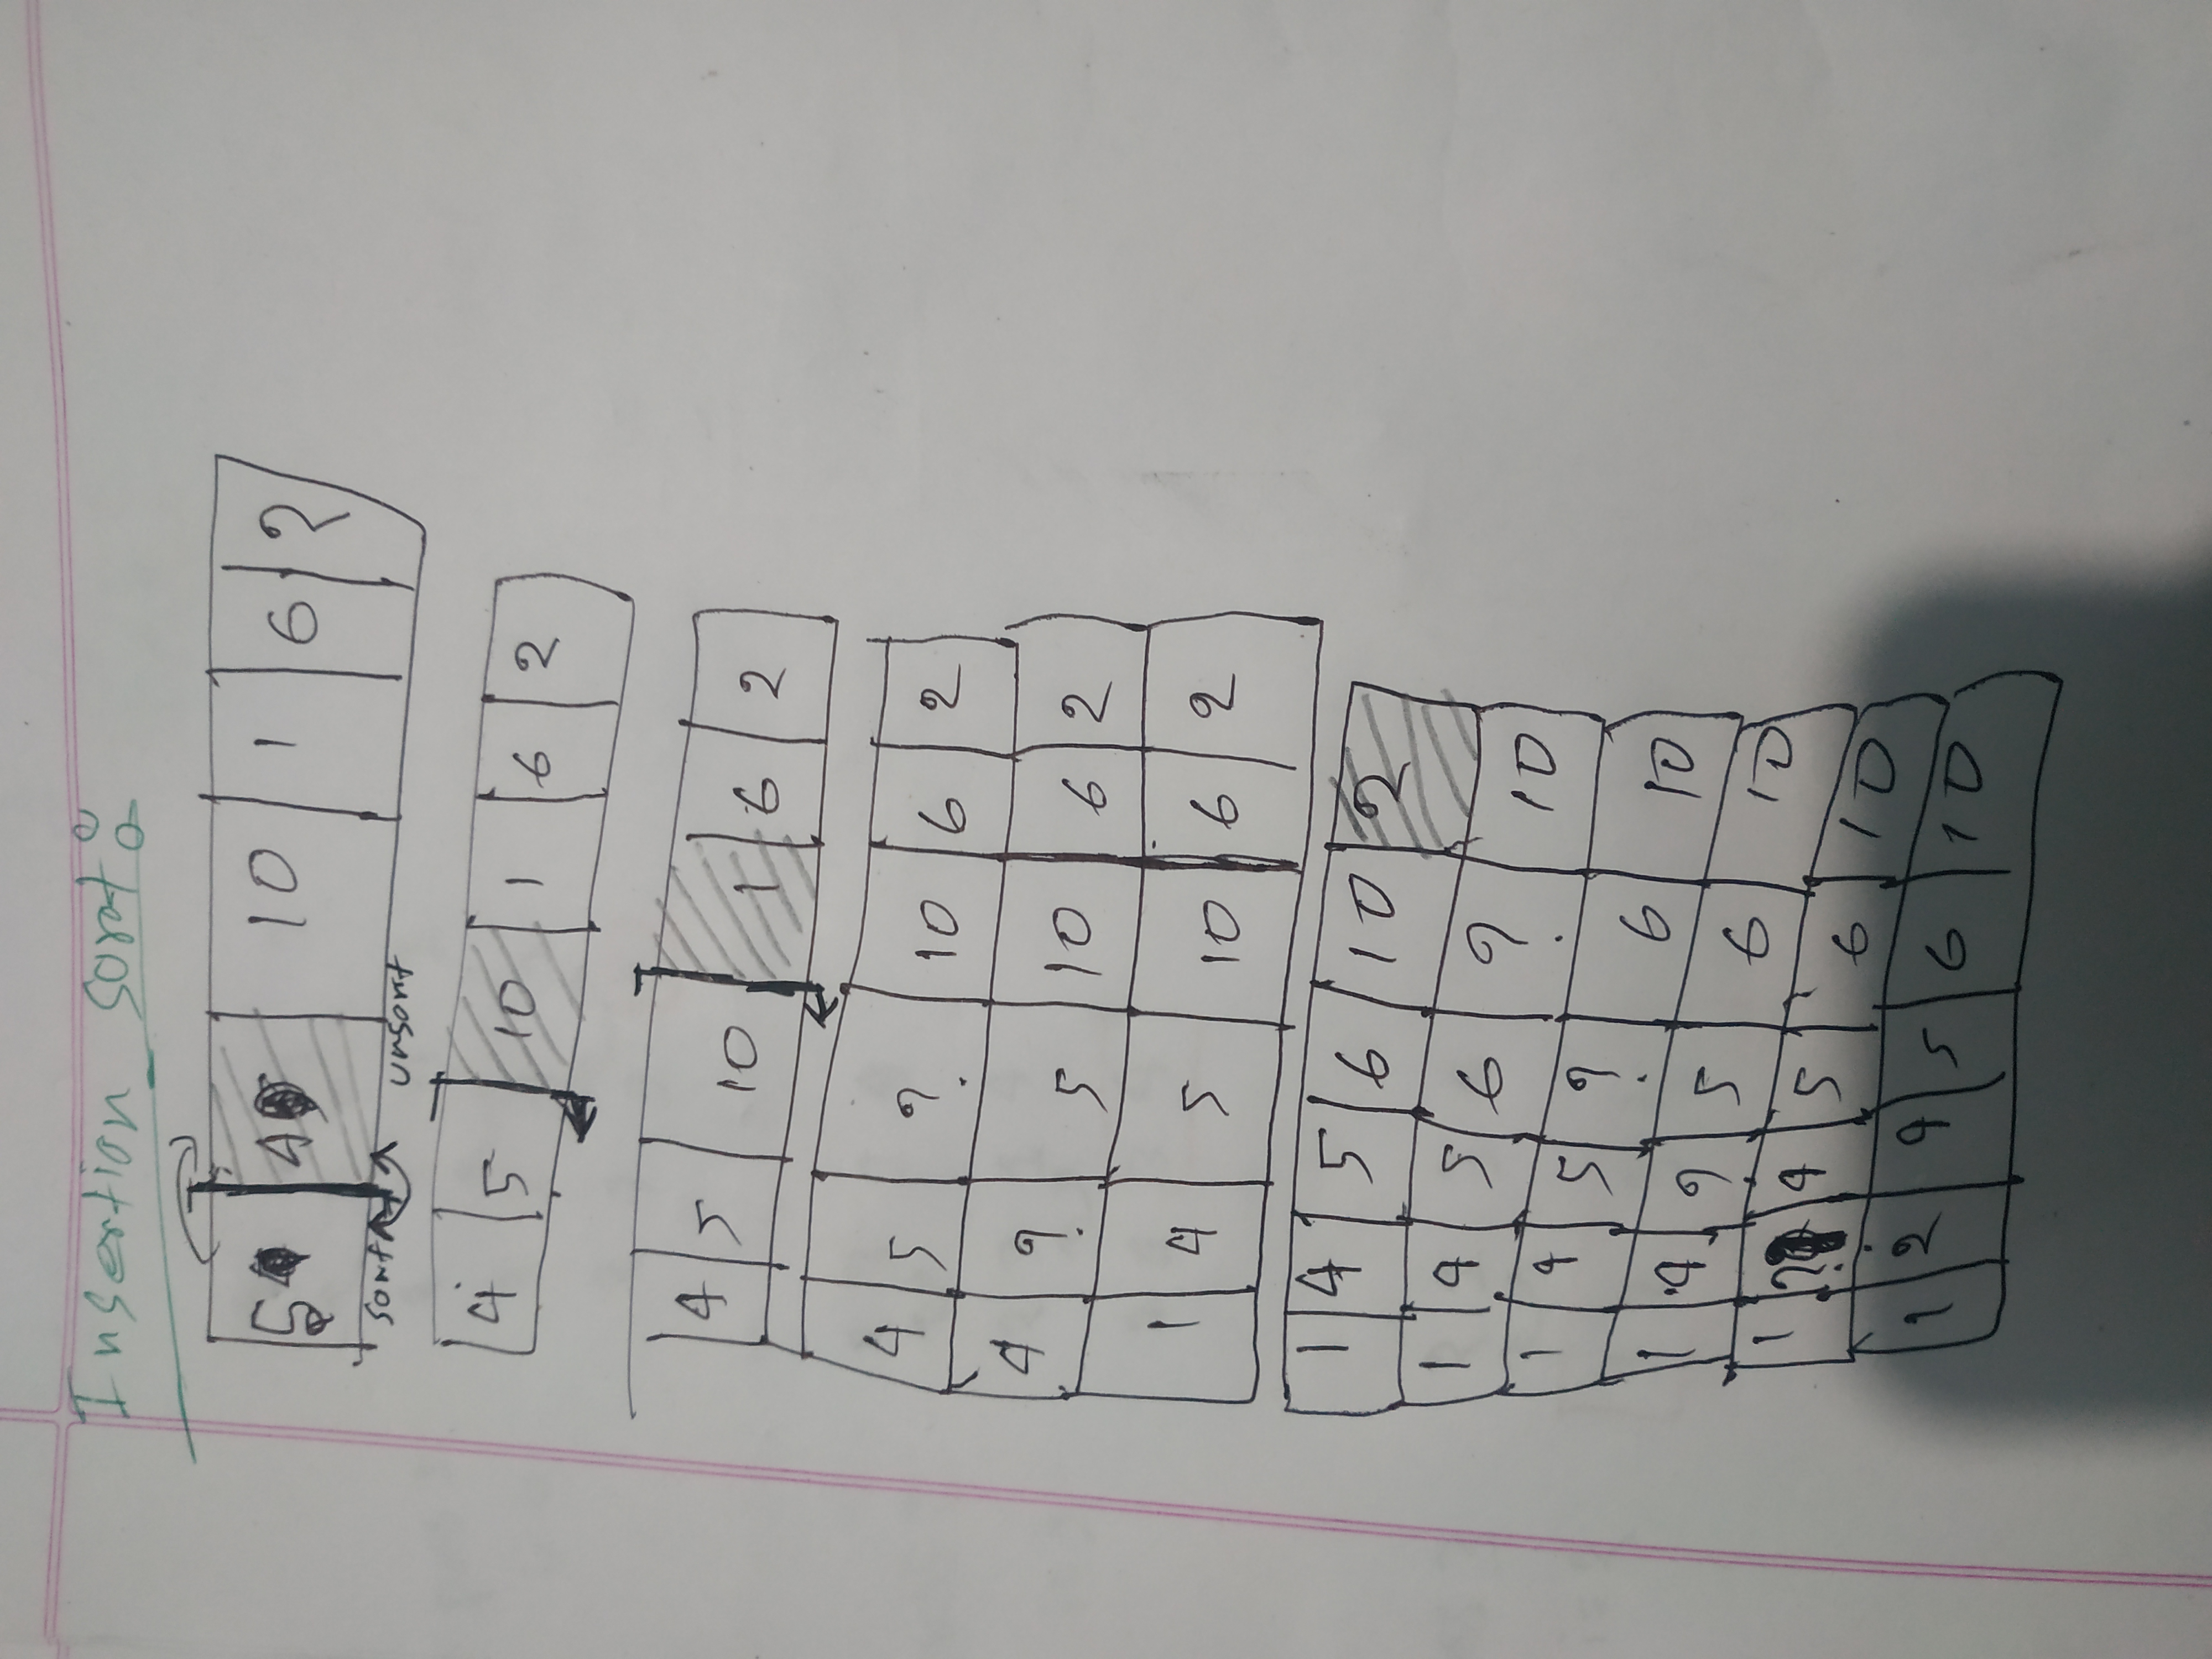 Insertion sort:
5 4 10 1 6 2
sort unsort
4 5 10 1 6 2
4 5 10 1 6 2
4 5 ? 10 6 2
4 ? 5 10 6 2
1 4 5 10 6 2
1 4 5 6 10 2
1 4 5 6 ? 10
1 4 5 ? 6 10
1 4 ? 5 6 10
1 ? 4 5 6 10
1 2 4 5 6 10